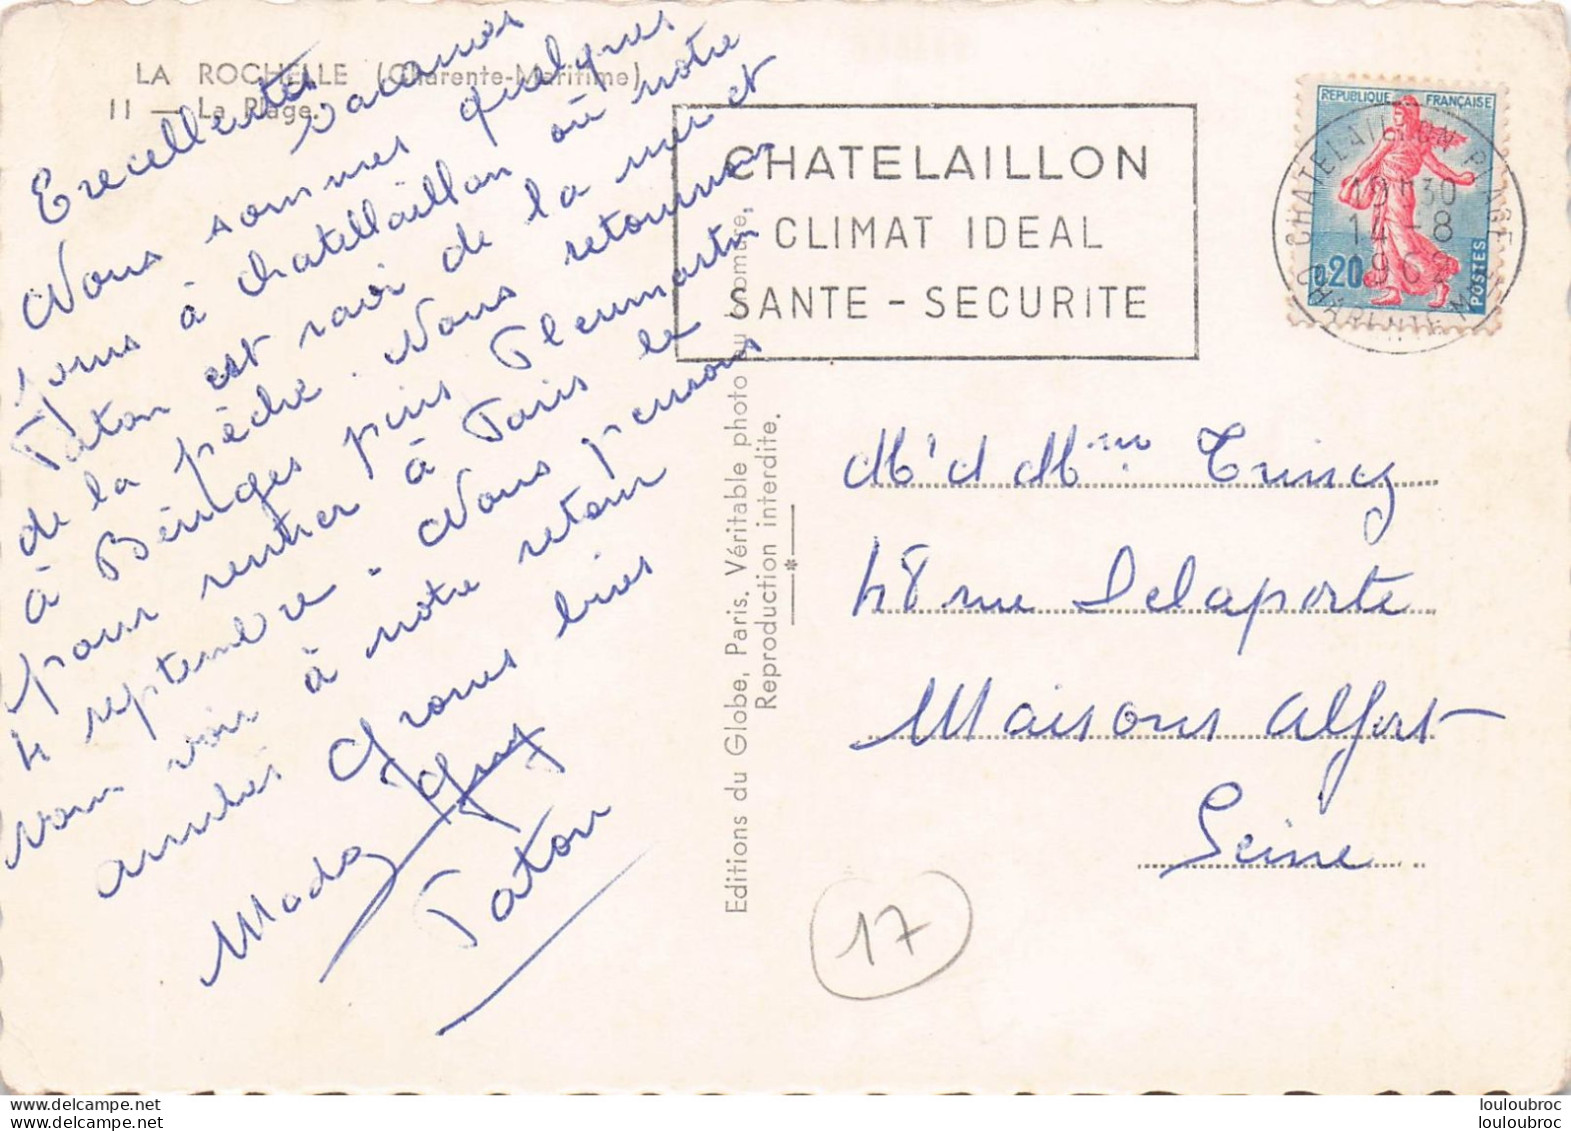 LA ROCHELLE (Charente-Maritime)
11 — La Plage.
Excellentes vacances
Nous sommes quelques
jours à chatellaillon où notre
Taton est ravi de la mer et
de la pêche. Nous retournons
à Béruges puis Pleumartin
pour rentrer à Paris le
4 septembre. Nous pensons
vous voir à notre retour
amitiés Grosses bises
Mado Guy
Taton
Editions du Globe, Paris. Véritable photo au bromure.
Reproduction interdite.
CHATELAILLON
CLIMAT IDEAL
SANTE - SECURITE
REPUBLIQUE FRANÇAISE
0,20
POSTES
CHATELAILLON PLAGE
19H30
14-8
1962
CHARENTE-MME
Mr & Mme
48 rue Delaporte
Maisons Alfort
Seine
17
louloubroc
louloubroc